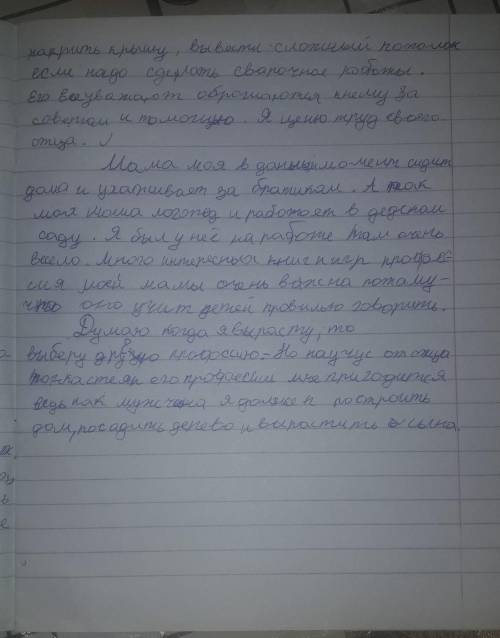 накрить крышу, вывести сложный потолок
если надо сделать сварочные работы.
Его все уважают обращаются к нему за
советом и помощью. Я ценю труд своего
отца. ✓
Мама моя в даный момент сидит
дома и ухаживает за братиком. А так
моя мама логопед и работает в детском
саду. Я был у неё на работе там очень
весело. Много интересных книг и игр профе-
сия моей мамы очень важна потаму-
что она учит детей правильно говорить.
Думаю когда я вырасту, то
выберу другую професию. Но научус от отца
его професии мне пригодится
ведь как мужчина я должен построить
дом, посадить дерево, вырастить сына.